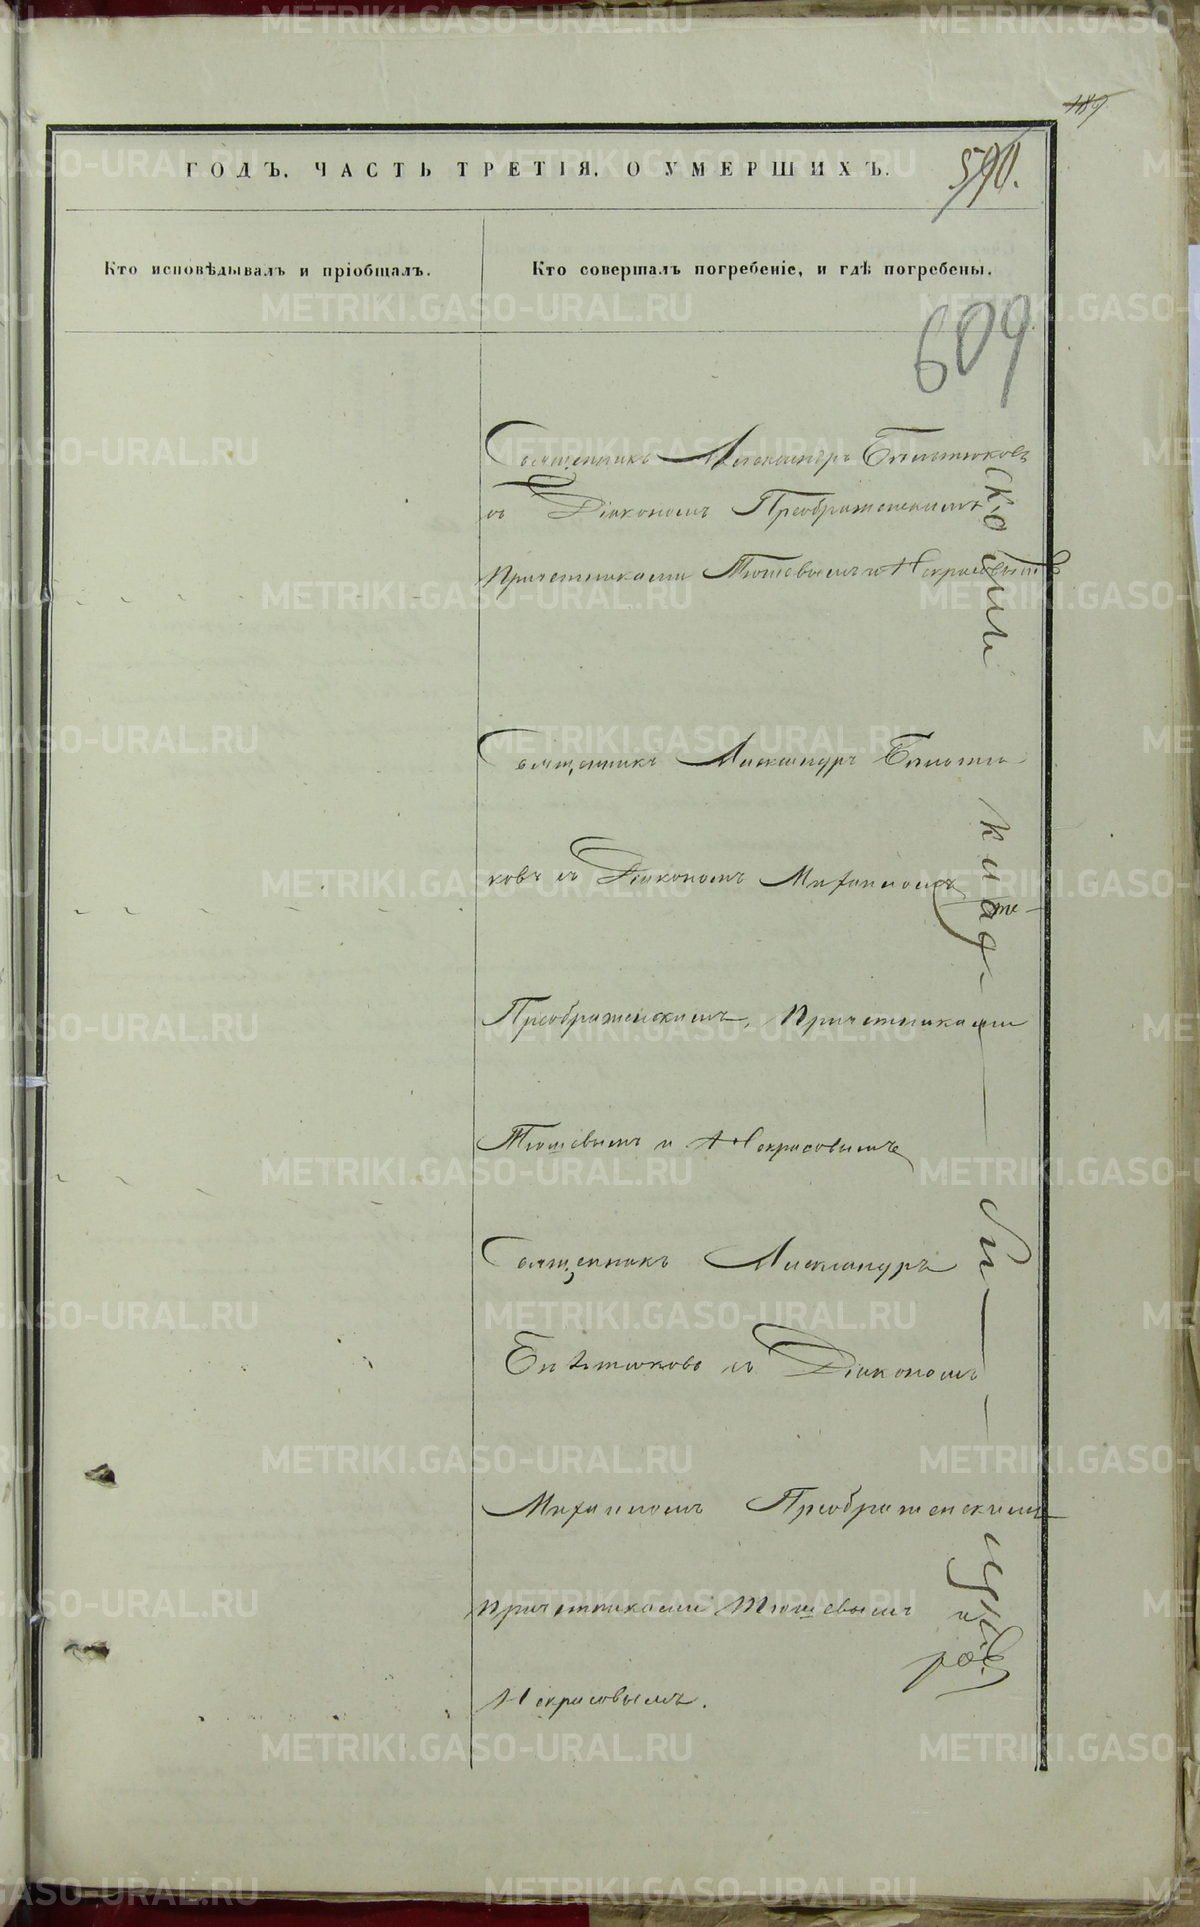 189.
ГОДЪ. ЧАСТЬ ТРЕТІЯ. О УМЕРШИХЪ.
590.
Кто исповѣдывалъ и пріобщалъ.
Кто совершалъ погребеніе, и гдѣ погребены.
609
Священникъ Александръ Билетюковъ
съ Діакономъ Преображенскимъ
Причетниками Тюшевымъ и Некрасовымъ
Священникъ Александръ Билетю-
ковъ съ Діакономъ Михаиломъ
Преображенскимъ, Причетниками
Тюшевымъ и Некрасовымъ
Священникъ Александръ
Билетюковъ съ Діакономъ
Михаиломъ Преображенскимъ
причетниками Тюшевымъ и
Некрасовымъ.
METRIKI.GASO-URAL.RU